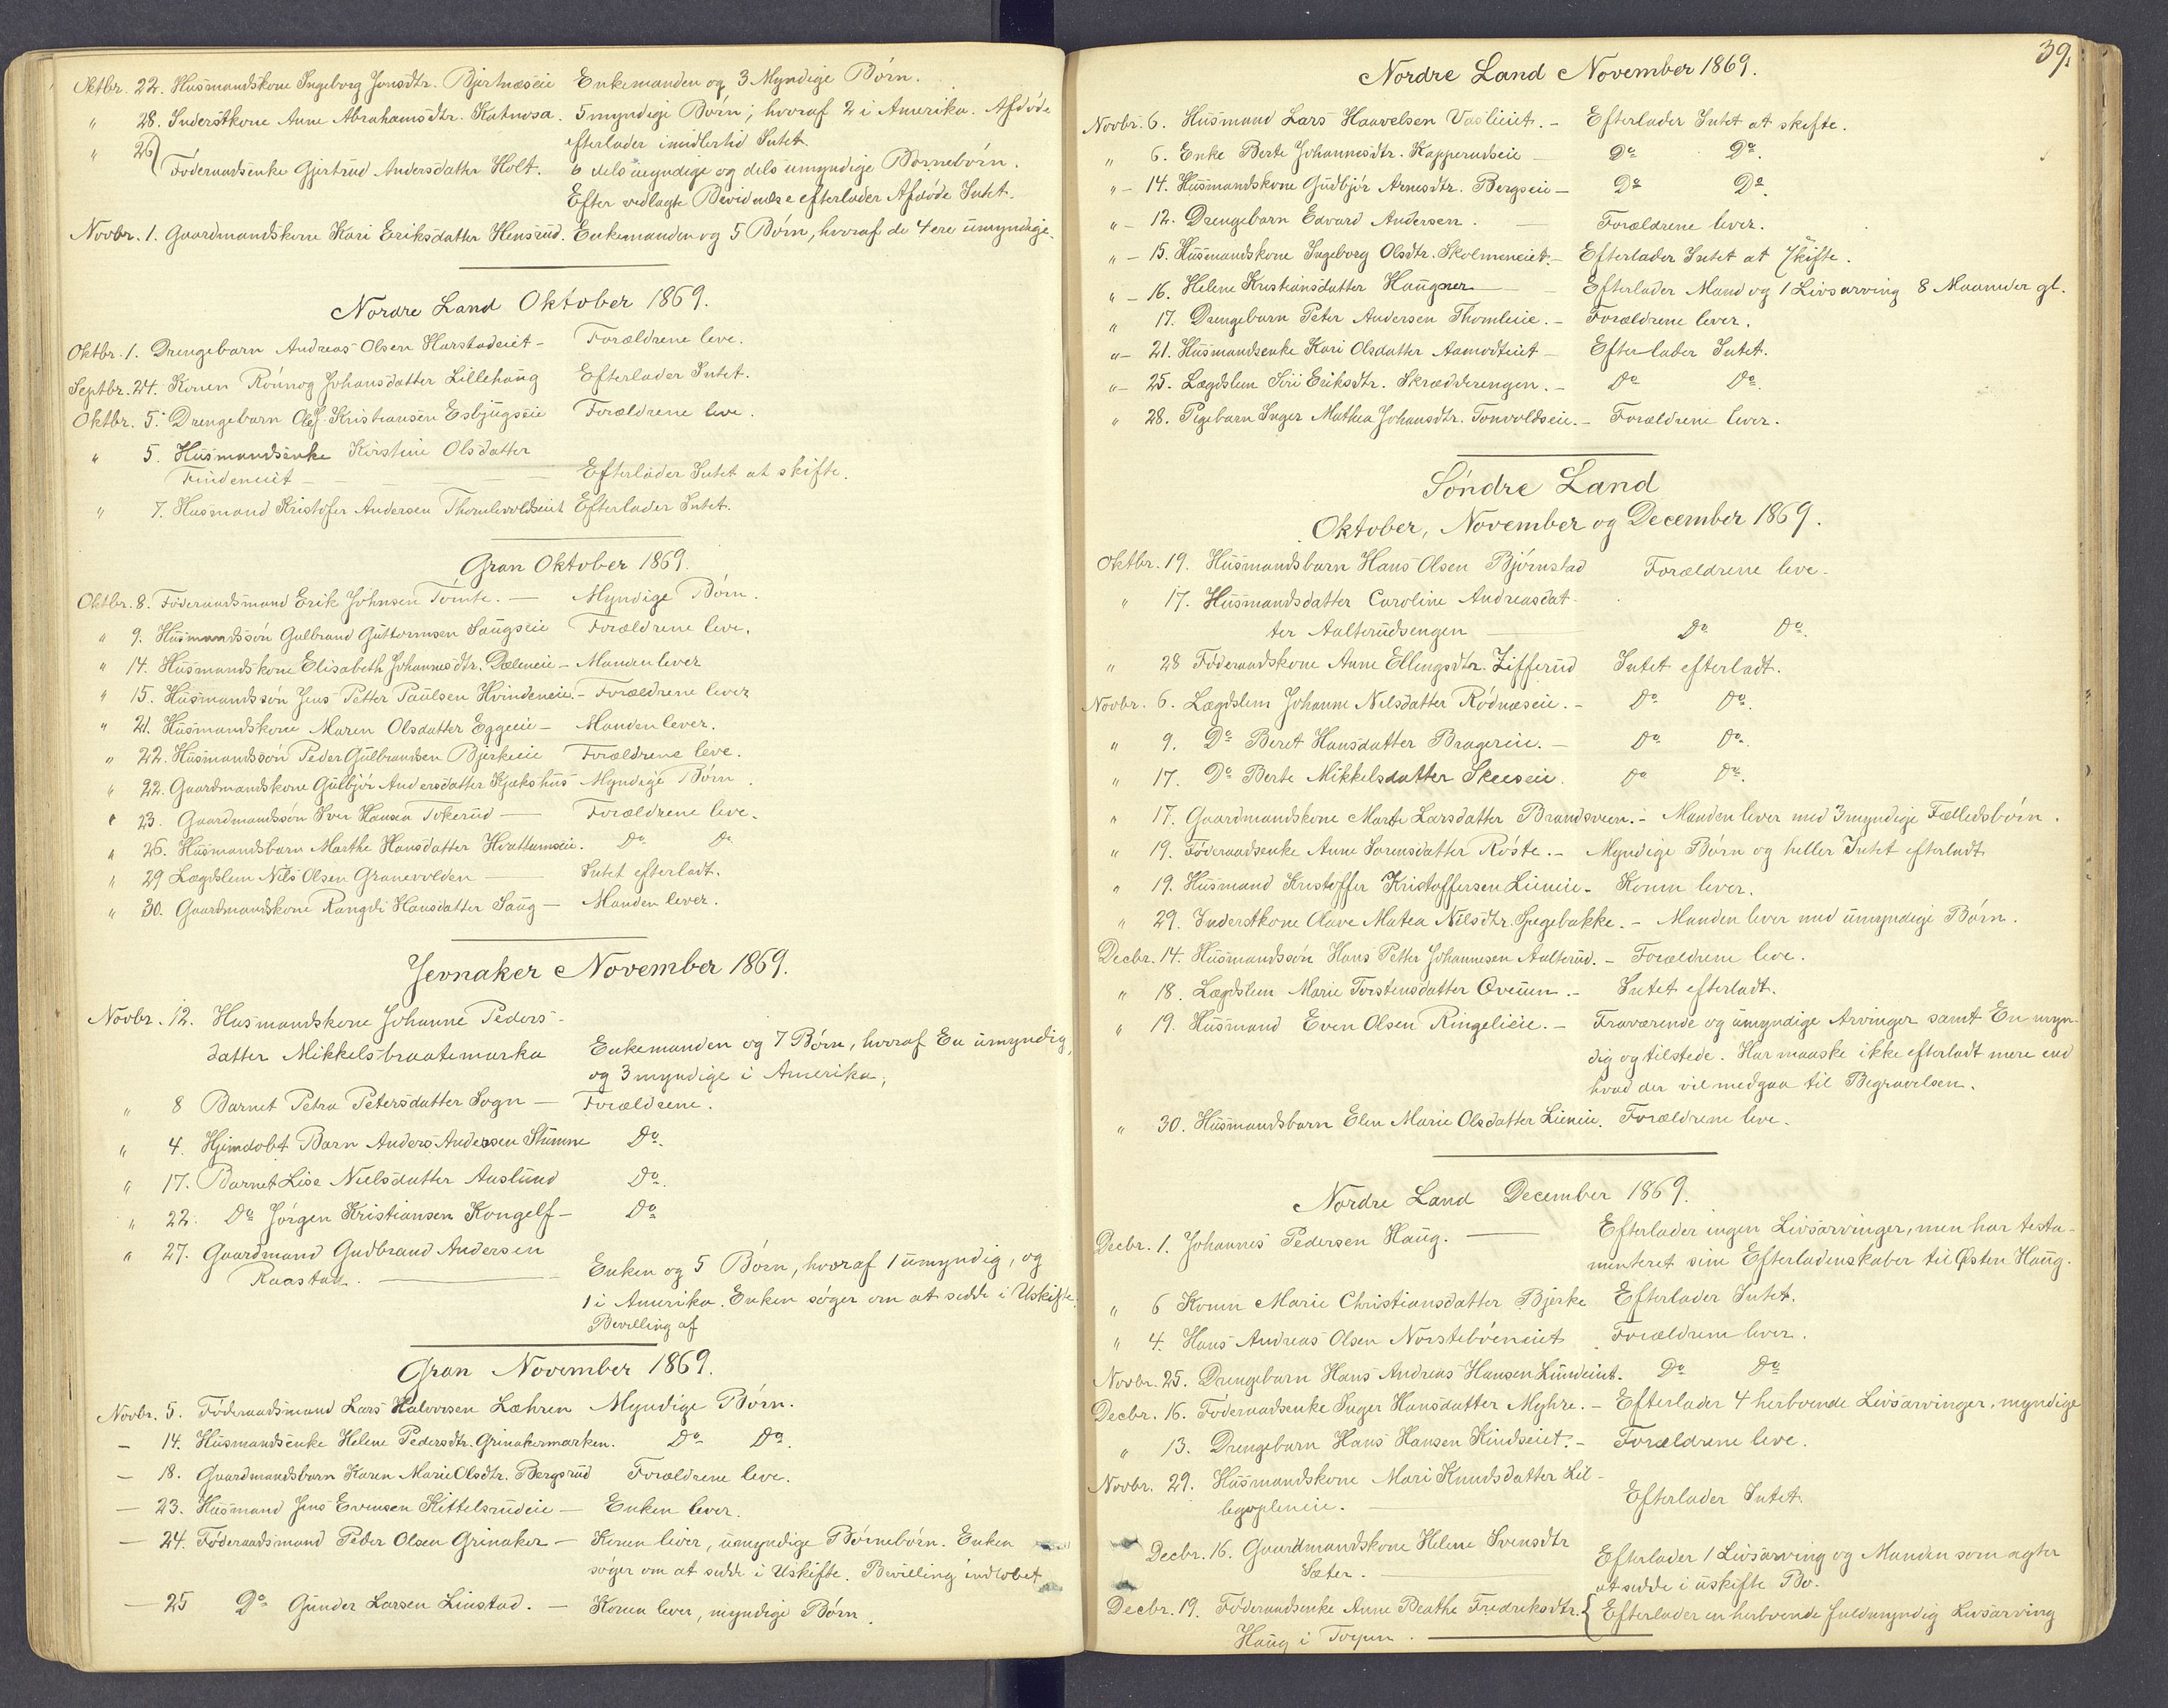 Oktbr. 22. Husmandskone Ingeborg Jonsdtr. Bjertnæseie Enkemanden og 3 Myndige Børn.
" 28. Inderstkone Anne Abrahamsdtr. Katnosa. 5 myndige Børn; hvoraf 2 i Amerika. Afdøde
efterlader imidlertid Intet.
" 26 Föderaadsenke Gjertrud Andersdatter Holt. 6 dels myndige og dels umyndige Børnebørn.
Efter vedlagte Bevidnelse efterlader Afdøde Intet.
Novbr. 1. Gaardmandskone Kari Eriksdatter Hensrud. Enkemanden og 5 Børn, hvoraf de 4 ere umyndige.
Nordre Land Oktober 1869.
Oktbr. 1. Drengebarn Andreas Olsen Harstadeiet - Forældrene leve.
Septbr. 24. Konen Rönnog Johansdatter Lillehaug Efterlader Intet.
Oktbr. 5. Drengebarn Olef Kristiansen Esbjugseie Forældrene leve.
" 5. Husmandsenke Kirstine Olsdatter
Findeneiet - Efterlader Intet at skifte.
" 7. Husmand Kristofer Andersen Thomlevoldseiet Efterlader Intet.
Gran Oktober 1869.
Oktbr. 8. Föderaadsmand Erik Johnsen Tömte. - Myndige Børn.
" 9. Husmandssön Gulbrand Guttormsen Saugseie Forældrene leve.
" 14. Husmandskone Elisabeth Johannesdtr. Dæleneie - Manden lever
" 15. Husmandssön Jens Petter Paulsen Hvindeneie. - Forældrene lever
" 21. Husmandskone Maren Olsdatter Eggeeie - Manden lever.
" 22. Husmandssön Peder Gulbrandsen Bjerkeeie Forældrene leve.
" 22. Gaardmandskone Gulbjör Andersdatter Kjækshus Myndige Børn.
" 23. Gaardmandssön Iver Hansen Tokerud - Forældrene leve.
" 26. Husmandsbarn Marthe Hansdatter Hvattumseie. Do Do
" 29 Lægdslem Nils Olsen Granevolden - Intet efterladt.
" 30. Gaardmandskone Rangdi Hansdatter Saug - Manden lever.
Jevnaker November 1869.
Novbr. 12. Husmandskone Johanne Peders-
datter Mikkelsbraatemarka Enkemanden og 7 Børn, hvoraf En umyndig,
og 3 myndige i Amerika.
" 8 Barnet Petra Petersdatter Sogn - Forældrene.
" 4. Hjemdøbt Barn Anders Andersen Stumne Do.
" 17. Barnet Lise Nielsdatter Aaslund Do.
" 22. Do Jörgen Kristiansen Kongelf - Do
" 27. Gaardmand Gudbrand Andersen
Raastad. - Enken og 5 Børn, hvoraf 1 umyndig, og
1 i Amerika. Enken søger om at sidde i Uskifte.
Bevilling af
Gran November 1869.
Novbr. 5. Föderaadsmand Lars Halvorsen Læhren Myndige Børn.
- 14. Husmandsenke Helene Pedersdtr. Grinakermarken. Do Do.
- 18. Gaardmandsbarn Karen Marie Olsdtr. Bergsrud Forældrene leve.
- 23. Husmand Jens Evensen Kittelsrudeie - Enken lever.
- 24. Föderaadsmand Peder Olsen Grinaker - Konen lever, umyndige Børnebørn. Enken
søger om at sidde i Uskifte. Bevilling indløbet
- 25 Do Gunder Larsen Linstad. - Konen lever, myndige Børn.
39.
Nordre Land November 1869.
Novbr. 6. Husmand Lars Haavelsen Vaslieiet. - Efterlader Intet at skifte.
" 6. Enke Berte Johannesdtr. Kapperudseie - Do Do.
" - 14. Husmandskone Gudbjör Arnesdtr. Bergseie - Do Do.
" - 12. Drengebarn Edvard Andersen. - Forældrene lever.
" - 15. Husmandskone Ingeborg Olsdtr. Skolmeneiet. - Efterlader Intet at skifte.
" - 16. Helene Kristiansdatter Haugner - Efterlader Mand og 1 Livsarving 8 Maaneder gl.
" 17. Drengebarn Peter Andersen Thomleeie. - Forældrene lever.
" - 21. Husmandsenke Kari Olsdatter Aamodteiet - Efterlader Intet.
" - 25. Lægdslem Siri Eriksdtr. Skrædderengen. - Do Do.
" 28. Pigebarn Inger Mathea Johansdtr. Tonvoldseie. - Forældrene lever.
Söndre Land
Oktober, November og December 1869.
Oktbr. 19. Husmandsbarn Hans Olsen Björnstad Forældrene leve.
" 17. Husmandsdatter Caroline Andreasdat-
ter Aalterudsengen - Do Do.
" 28 Föderaadskone Anne Ellingsdtr. Zifferud Intet efterladt.
Novbr. 6. Lægdslem Johanne Nilsdatter Rödnæseie. - Do Do.
" 9. Do Beret Hansdatter Bragereie. - Do Do.
" 17. Do Berte Mikkelsdatter Skeeseie. Do Do.
" 17. Gaardmandskone Marte Larsdatter Brandsveen. - Manden lever med 3 myndige Fælledsbörn.
" 19. Föderaadsenke Anne Sorensdatter Röste. - Myndige Børn og heller Intet efterladt
" 19. Husmand Kristoffer Kristoffersen Lieneie - Konen lever.
" 29. Inderstkone Olave Matea Nilsdtr. Gregebakke. - Manden lever med umyndige Børn.
Decbr. 14. Husmandssön Hans Petter Johannesen Aalterud. - Forældrene leve.
" 18. Lægdslem Marie Torstensdatter Oveuen. - Intet efterladt.
" 19. Husmand Even Olsen Ringelieie. - Fraværende og umyndige Arvinger samt En myn-
dig og tilstede. Har maaske ikke efterladt mere end
hvad der vil medgaa til Begravelsen.
" 30. Husmandsbarn Elen Marie Olsdatter Lieneie. Forældrene leve.
Nordre Land December 1869.
Decbr. 1. Johannes Pedersen Haug. - Efterlader ingen Livsarvinger, men har testa-
menteret sine Efterladenskaber til Østen Haug.
" 6 Konen Marie Christiansdatter Bjerke Efterlader Intet.
" 4. Hans Andreas Olsen Norstebøeneiet Forældrene lever.
Novbr. 25. Drengebarn Hans Andreas Hansen Lundeiet. Do Do
Decbr. 16. Föderaadsenke Inger Hansdatter Myhre. - Efterlader 4 herboende Livsarvinger, myndige
" 13. Drengebarn Hans Hansen Hindseiet. - Forældrene leve.
Novbr. 29. Husmandskone Mari Knudsdatter Lil-
Efterlader Intet.
Decbr. 16. Gaardmandskone Helene Svensdtr
Sæter. - Efterlader 1 Livsarving og Manden som agter
at sidde i uskifte Bo.
Decbr. 19. Föderaadsenke Anne Beathe Fredreksdtr. { Efterlader en herboende fuldmyndig Livsarving
Haug i Torpen.